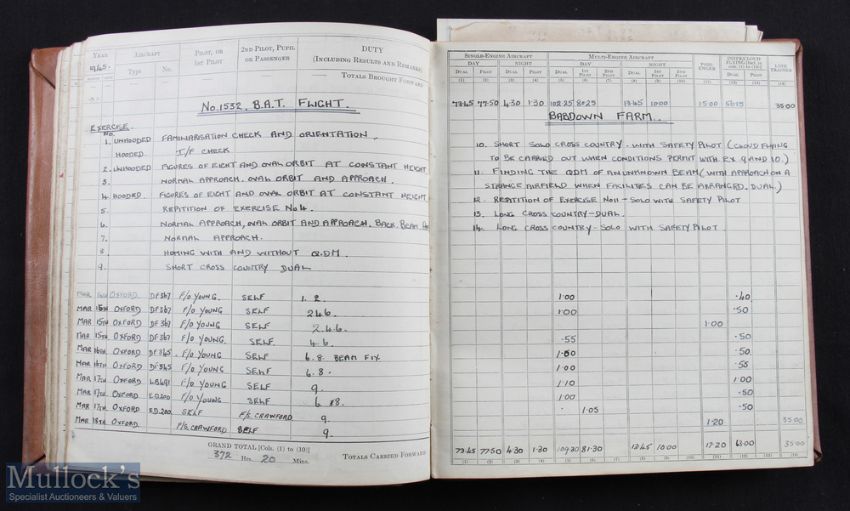 YEAR
1945.
AIRCRAFT
Type
No.
PILOT, OR
1ST PILOT
2ND PILOT, PUPIL
OR PASSENGER
DUTY
(INCLUDING RESULTS AND REMARKS)
TOTALS BROUGHT FORWARD
No. 1532. B.A.T. FLIGHT.
EXERCISE
No.
1. UNHOODED FAMILIARISATION CHECK AND ORIENTATION.
HOODED T/F CHECK
2. UNHOODED FIGURES OF EIGHT AND OVAL ORBIT AT CONSTANT HEIGHT.
3. NORMAL APPROACH. OVAL ORBIT AND APPROACH.
4. HOODED. FIGURES OF EIGHT AND OVAL ORBIT AT CONSTANT HEIGHT
5. REPITITION OF EXERCISE No 4.
6. NORMAL APPROACH, OVAL ORBIT AND APPROACH. BACK. BEAM
7. NORMAL APPROACH.
8. HOMING WITH AND WITHOUT Q.D.M.
9. SHORT CROSS COUNTRY DUAL
MAR OXFORD DF367 F/O YOUNG. SELF 1. 2.
MAR 15TH OXFORD DF367 F/O YOUNG SELF 2.4.6.
MAR 15TH OXFORD DF367 F/O YOUNG SELF 2.4.6.
MAR 15TH OXFORD DF367 F/O YOUNG. SELF 4.6.
MAR 16TH OXFORD DF365. F/O YOUNG. SELF 6.8. BEAM FIX
MAR 16TH OXFORD DF365 F/O YOUNG SELF 6.8.
MAR 17TH OXFORD F/O YOUNG SELF 9.
MAR 17TH OXFORD ED200 F/O YOUNG SELF
MAR 17TH OXFORD ED.200 SELF F/S. CRAWFORD 9.
MAR 18TH OXFORD F/S. CRAWFORD SELF 9.
GRAND TOTAL [Cols. (1) to (10)]
372 Hrs. 20 Mins.
TOTALS CARRIED FORWARD
SINGLE-ENGINE AIRCRAFT
MULTI-ENGINE AIRCRAFT
DAY NIGHT DAY NIGHT
DUAL PILOT DUAL PILOT DUAL 1ST PILOT 2ND PILOT DUAL 1ST PILOT 2ND PILOT
PASSENGER
DUAL PILOT
LINK TRAINER
(1) (2) (3) (4) (5) (6) (7) (8) (9) (10) (11) (12) (13) (14)
73.45 77.50 4.30 1.30 102.25 80.25 13.45 10.00 15.00 35.00
BABDOWN FARM.
10. SHORT SOLO CROSS COUNTRY. WITH SAFETY PILOT (CLOUD FLYING
TO BE CARRIED OUT WHEN CONDITIONS PERMIT WITH EX 9 AND 10.)
11. FINDING THE QDM OF AN UNKNOWN BEAM (WITH APPROACH ON A
STRANGE AIRFIELD WHEN FACILITIES CAN BE ARRANGED. DUAL)
12. REPITITION OF EXERCISE No 11 - SOLO WITH SAFETY PILOT
13. LONG CROSS COUNTRY - DUAL.
14. LONG CROSS COUNTRY - SOLO WITH SAFETY PILOT.
1.00 .40
1.00 .50
1.00
.55 .50
1.00 .50
1.00 .55
1.10 1.00
1.00 .50
1.05 .50
1.20 35.00
73.45 77.50 4.30 1.30 109.30 81.30 13.45 10.00 17.20 63.00 35.00
Mullock's
Specialist Auctioneers & Valuers